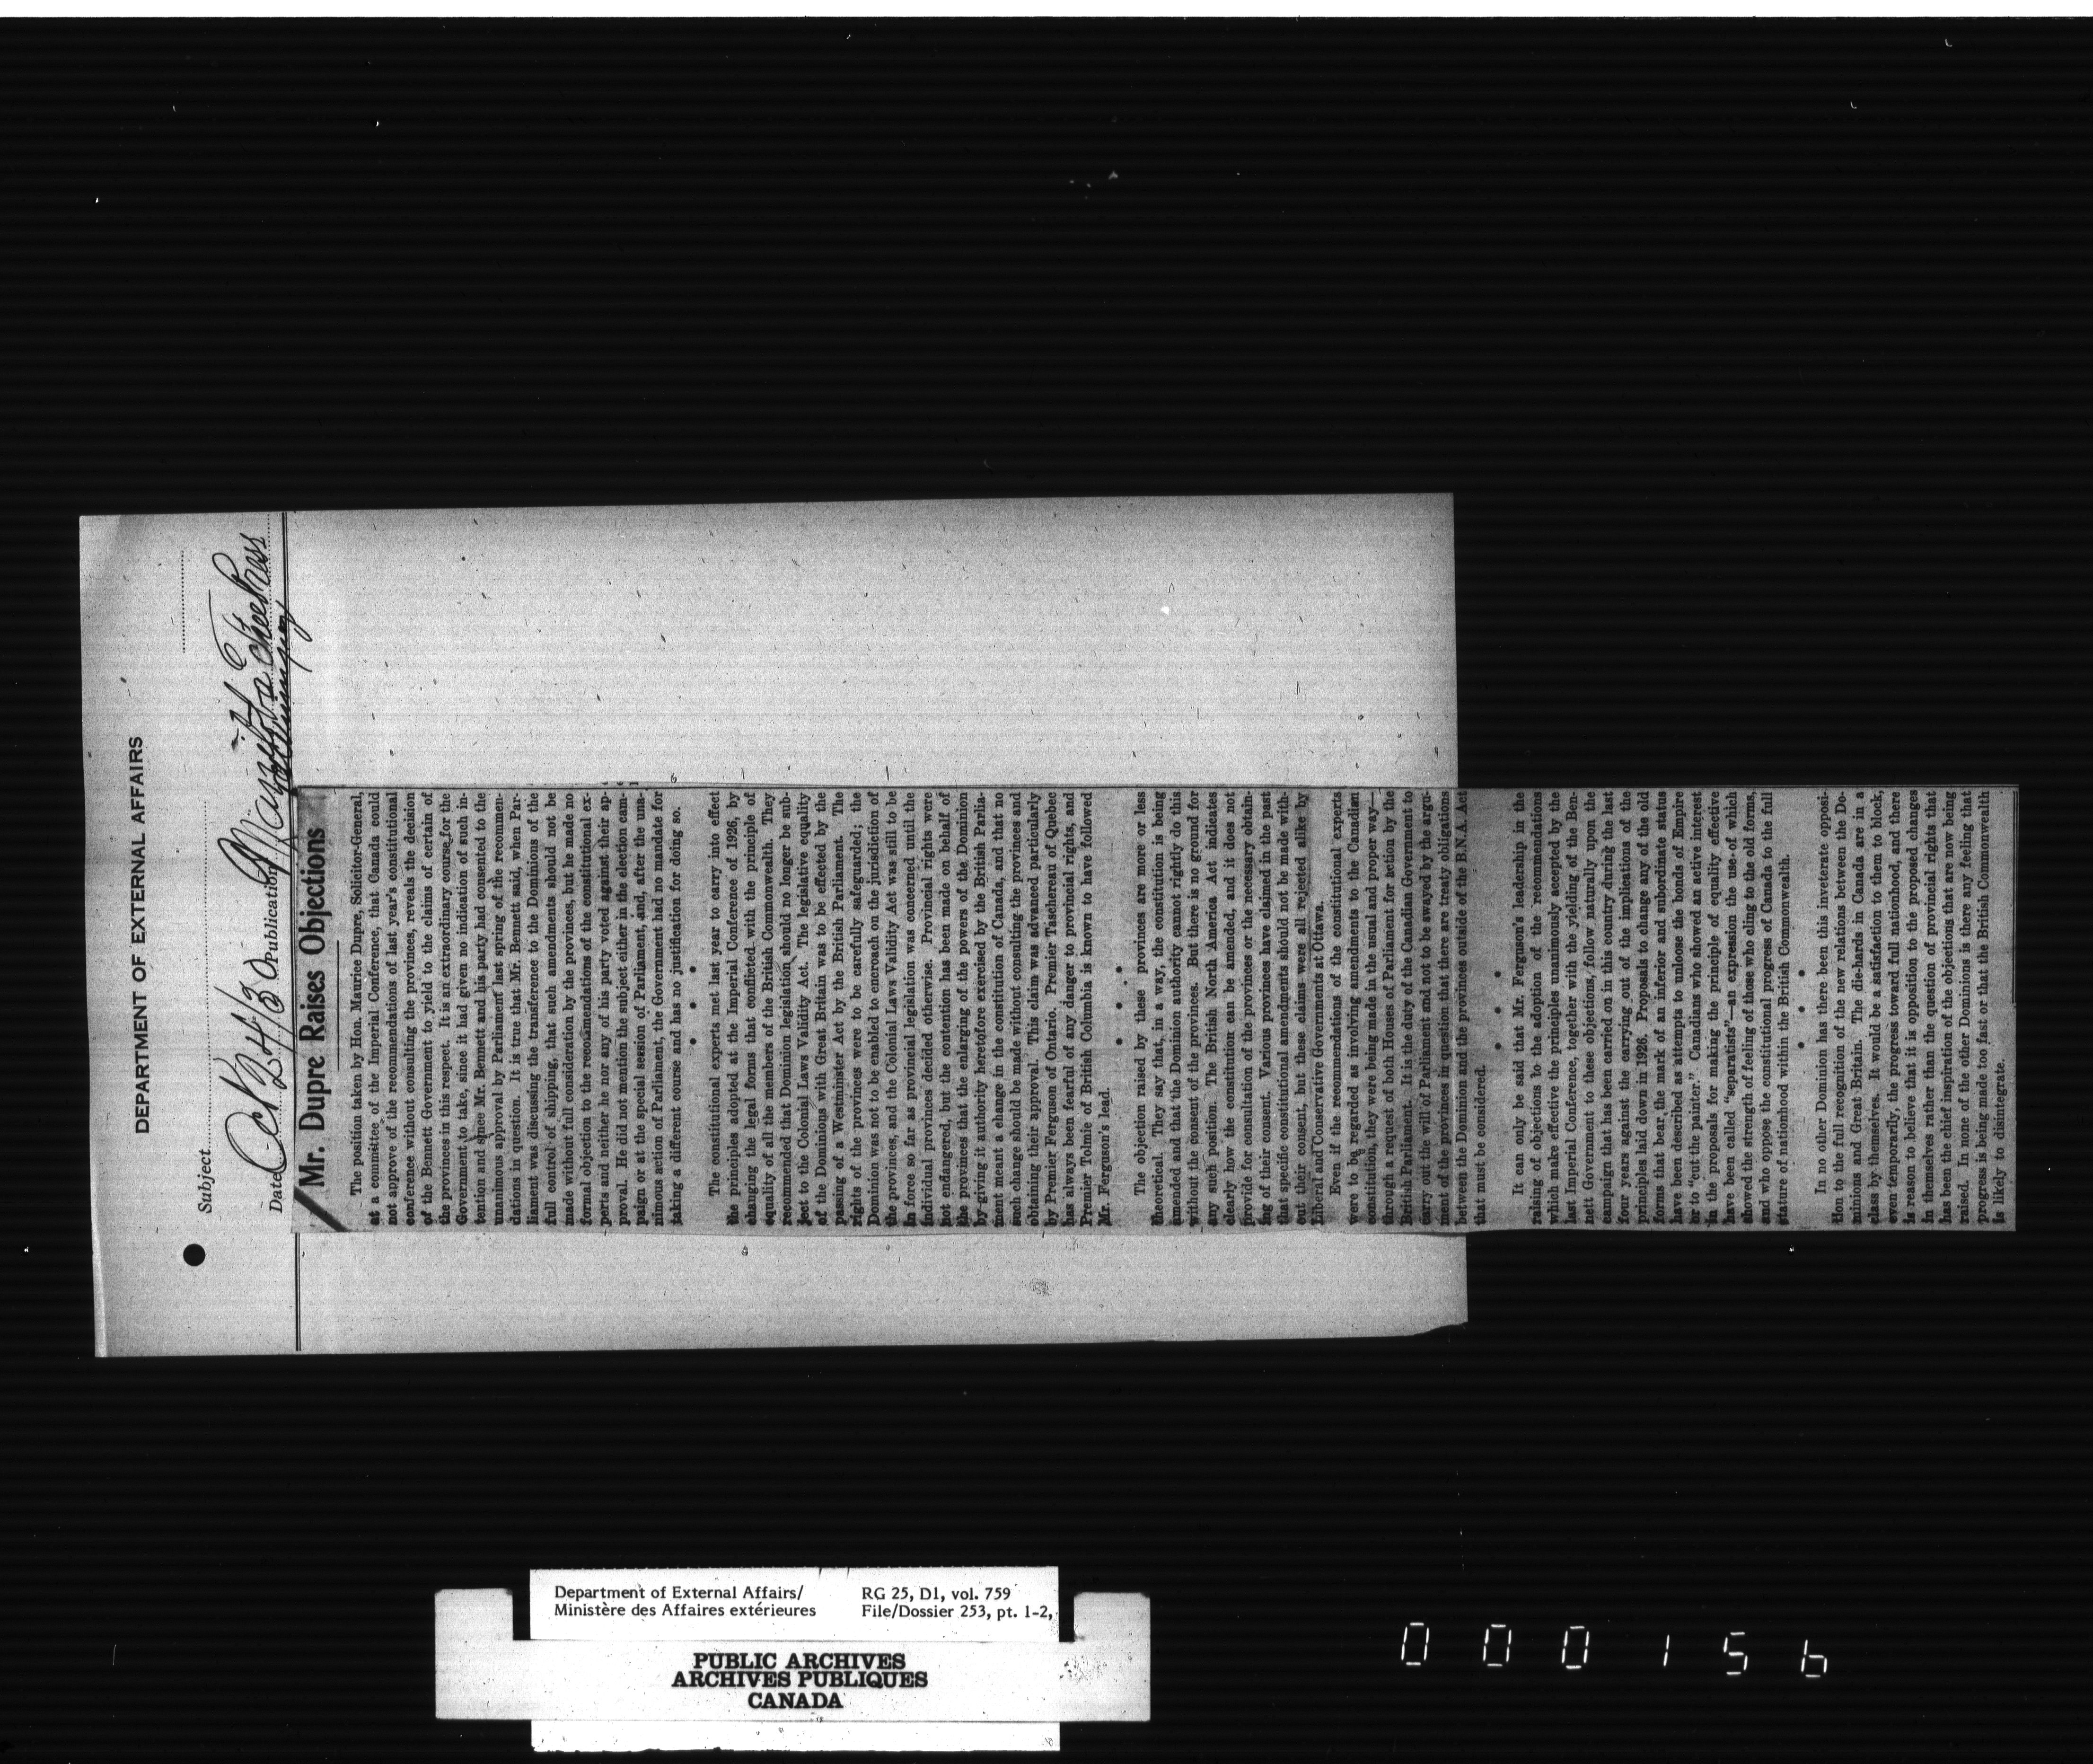 DEPARTMENT OF EXTERNAL AFFAIRS
Subject
Date Oct 24/30 Publication Manitoba Free Press
Winnipeg
Mr. Dupre Raises Objections
The position taken by Hon. Maurice Dupre, Solicitor-General,
at a committee of the Imperial Conference, that Canada could
not approve of the recommendations of last year's constitutional
conference without consulting the provinces, reveals the decision
of the Bennett Government to yield to the claims of certain of
the provinces in this respect. It is an extraordinary course for the
Government to take, since it had given no indication of such in-
tention and since Mr. Bennett and his party had consented to the
unanimous approval by Parliament last spring of the recommen-
dations in question. It is true that Mr. Bennett said, when Par-
liament was discussing the transference to the Dominions of the
full control of shipping, that such amendments should not be
made without full consideration by the provinces, but he made no
formal objection to the recommendations of the constitutional ex-
perts and neither he nor any of his party voted against their ap-
proval. He did not mention the subject either in the election cam-
paign or at the special session of Parliament, and, after the una-
nimous action of Parliament, the Government had no mandate for
taking a different course and has no justification for doing so.
* * * *
The constitutional experts met last year to carry into effect
the principles adopted at the Imperial Conference of 1926, by
changing the legal forms that conflicted with the principle of
equality of all the members of the British Commonwealth. They
recommended that Dominion legislation should no longer be sub-
ject to the Colonial Laws Validity Act. The legislative equality
of the Dominions with Great Britain was to be effected by the
passing of a Westminster Act by the British Parliament. The
rights of the provinces were to be carefully safeguarded; the
Dominion was not to be enabled to encroach on the jurisdiction of
the provinces, and the Colonial Laws Validity Act was still to be
in force so far as provincial legislation was concerned until the
individual provinces decided otherwise. Provincial rights were
not endangered, but the contention has been made on behalf of
the provinces that the enlarging of the powers of the Dominion
by giving it authority heretofore exercised by the British Parlia-
ment meant a change in the constitution of Canada, and that no
such change should be made without consulting the provinces and
obtaining their approval. This claim was advanced particularly
by Premier Ferguson of Ontario. Premier Taschereau of Quebec
has always been fearful of any danger to provincial rights, and
Premier Tolmie of British Columbia is known to have followed
Mr. Ferguson's lead.
* * * *
The objection raised by these provinces are more or less
theoretical. They say that, in a way, the constitution is being
amended and that the Dominion authority cannot rightly do this
without the consent of the provinces. But there is no ground for
any such position. The British North America Act indicates
clearly how the constitution can be amended, and it does not
provide for consultation of the provinces or the necessary obtain-
ing of their consent. Various provinces have claimed in the past
that specific constitutional amendments should not be made with-
out their consent, but these claims were all rejected alike by
Liberal and Conservative Governments at Ottawa.
Even if the recommendations of the constitutional experts
were to be regarded as involving amendments to the Canadian
constitution, they were being made in the usual and proper way—
through a request of both Houses of Parliament for action by the
British Parliament. It is the duty of the Canadian Government to
carry out the will of Parliament and not to be swayed by the argu-
ment of the provinces in question that there are treaty obligations
between the Dominion and the provinces outside of the B.N.A. Act
that must be considered.
* * * *
It can only be said that Mr. Ferguson's leadership in the
raising of objections to the adoption of the recommendations
which make effective the principles unanimously accepted by the
last Imperial Conference, together with the yielding of the Ben-
nett Government to these objections, follow naturally upon the
campaign that has been carried on in this country during the last
four years against the carrying out of the implications of the
principles laid down in 1926. Proposals to change any of the old
forms that bear the mark of an inferior and subordinate status
have been described as attempts to unloose the bonds of Empire
or to "cut the painter." Canadians who showed an active interest
in the proposals for making the principle of equality effective
have been called "separatists"—an expression the use of which
showed the strength of feeling of those who cling to the old forms,
and who oppose the constitutional progress of Canada to the full
stature of nationhood within the British Commonwealth.
* * * *
In no other Dominion has there been this inveterate opposi-
tion to the full recognition of the new relations between the Do-
minions and Great Britain. The die-hards in Canada are in a
class by themselves. It would be a satisfaction to them to block,
even temporarily, the progress toward full nationhood, and there
is reason to believe that it is opposition to the proposed changes
in themselves rather than the question of provincial rights that
has been the chief inspiration of the objections that are now being
raised. In none of the other Dominions is there any feeling that
progress is being made too fast or that the British Commonwealth
is likely to disintegrate.
Department of External Affairs/ RG 25, D1, vol. 759
Ministère des Affaires extérieures File/Dossier 253, pt. 1-2,
PUBLIC ARCHIVES
ARCHIVES PUBLIQUES
CANADA
000156